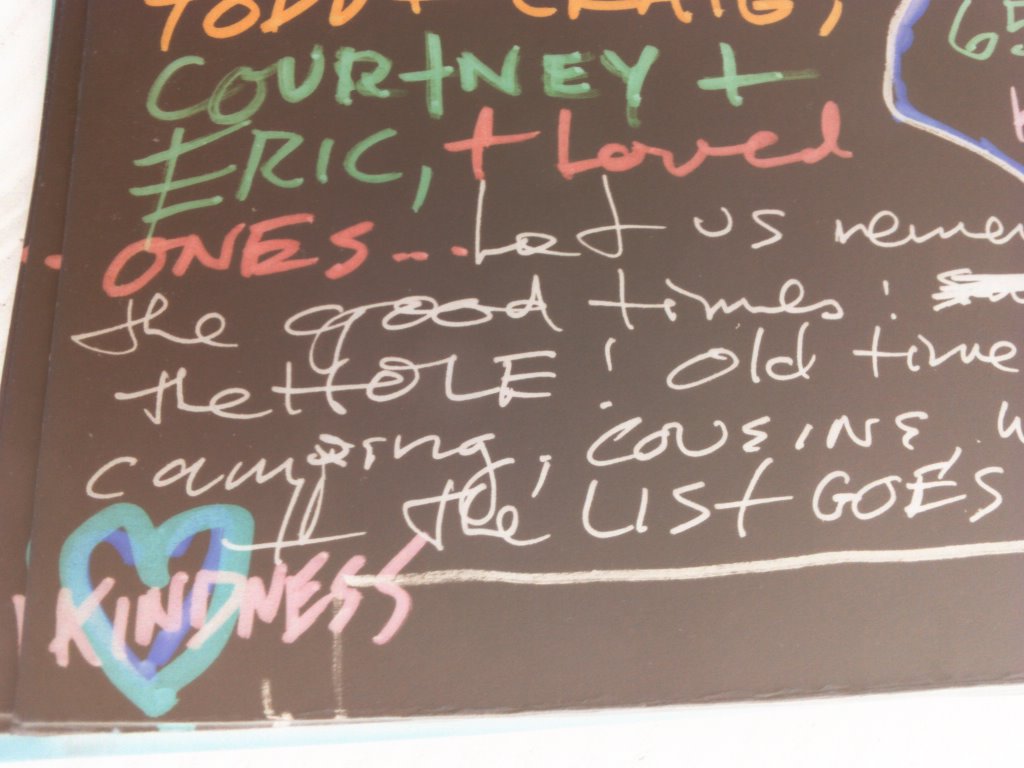 TODD + CRAIG,
COURTNEY +
ERIC, + Loved
ONES... Let us remem
the good times!
the HOLE! Old time
camping, COUSINS, W
the LIST GOES
KINDNESS
65